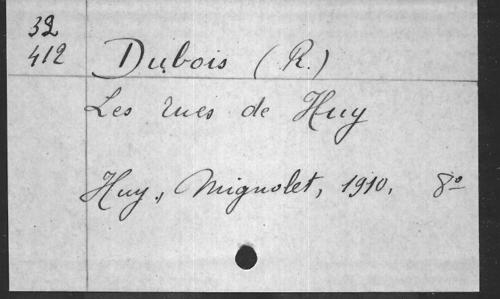 32
412
Dubois (R.)
Les rues de Huy
Huy, Mignolet, 1910, 8º